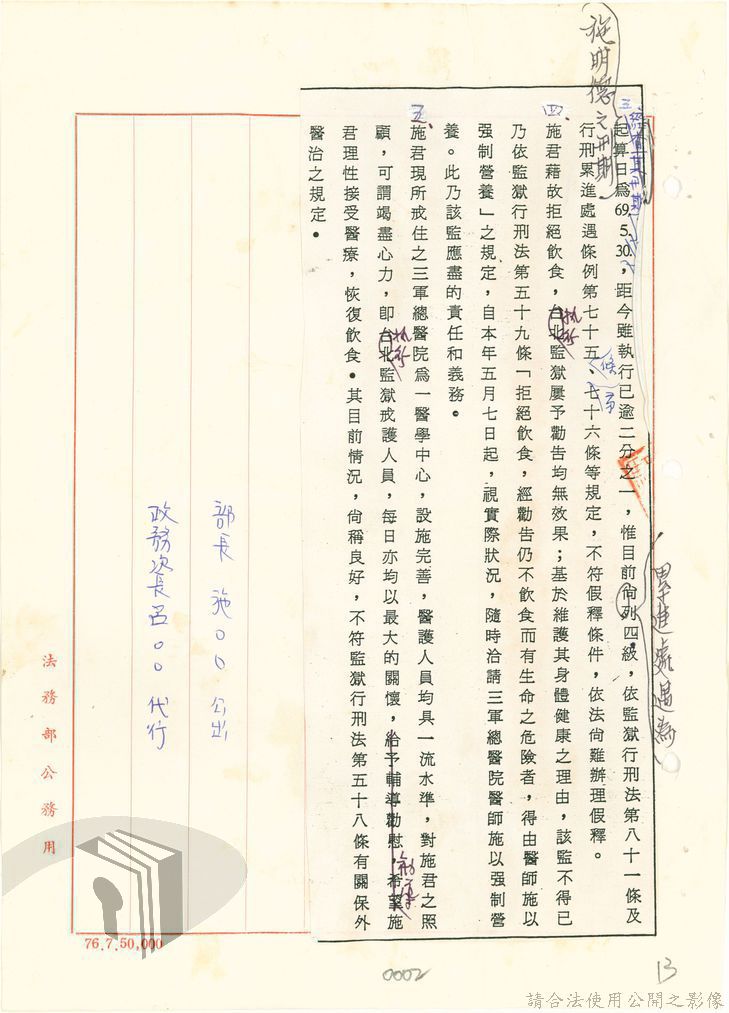 施明德之刑期
三、經查其刑期
起算日為69.5.30.，距今雖執行已逾二分之一，惟目前尚列四級，依監獄行刑法第八十一條及
累進處遇為
行刑累進處遇條例第七十五、七十六條等規定，不符假釋條件，依法尚難辦理假釋。
條
第
四、施君藉故拒絕飲食，台北監獄屢予勸告均無效果；基於維護其身體健康之理由，該監不得已
執行
乃依監獄行刑法第五十九條「拒絕飲食，經勸告仍不飲食而有生命之危險者，得由醫師施以
強制營養」之規定，自本年五月七日起，視實際狀況，隨時洽請三軍總醫院醫師施以強制營
養。此乃該監應盡的責任和義務。
五、施君現所戒住之三軍總醫院為一醫學中心，設施完善，醫護人員均具一流水準，對施君之照
顧，可謂竭盡心力，即台北監獄戒護人員，每日亦均以最大的關懷，給予輔導勸慰，希望施
執行
君理性接受醫療，恢復飲食。其目前情況，尚稱良好，不符監獄行刑法第五十八條有關保外
醫治之規定。
部長 施〇〇 公出
政務次長呂〇〇 代行
法務部公務用
76.7.50,000
0002
13
請合法使用公開之影像